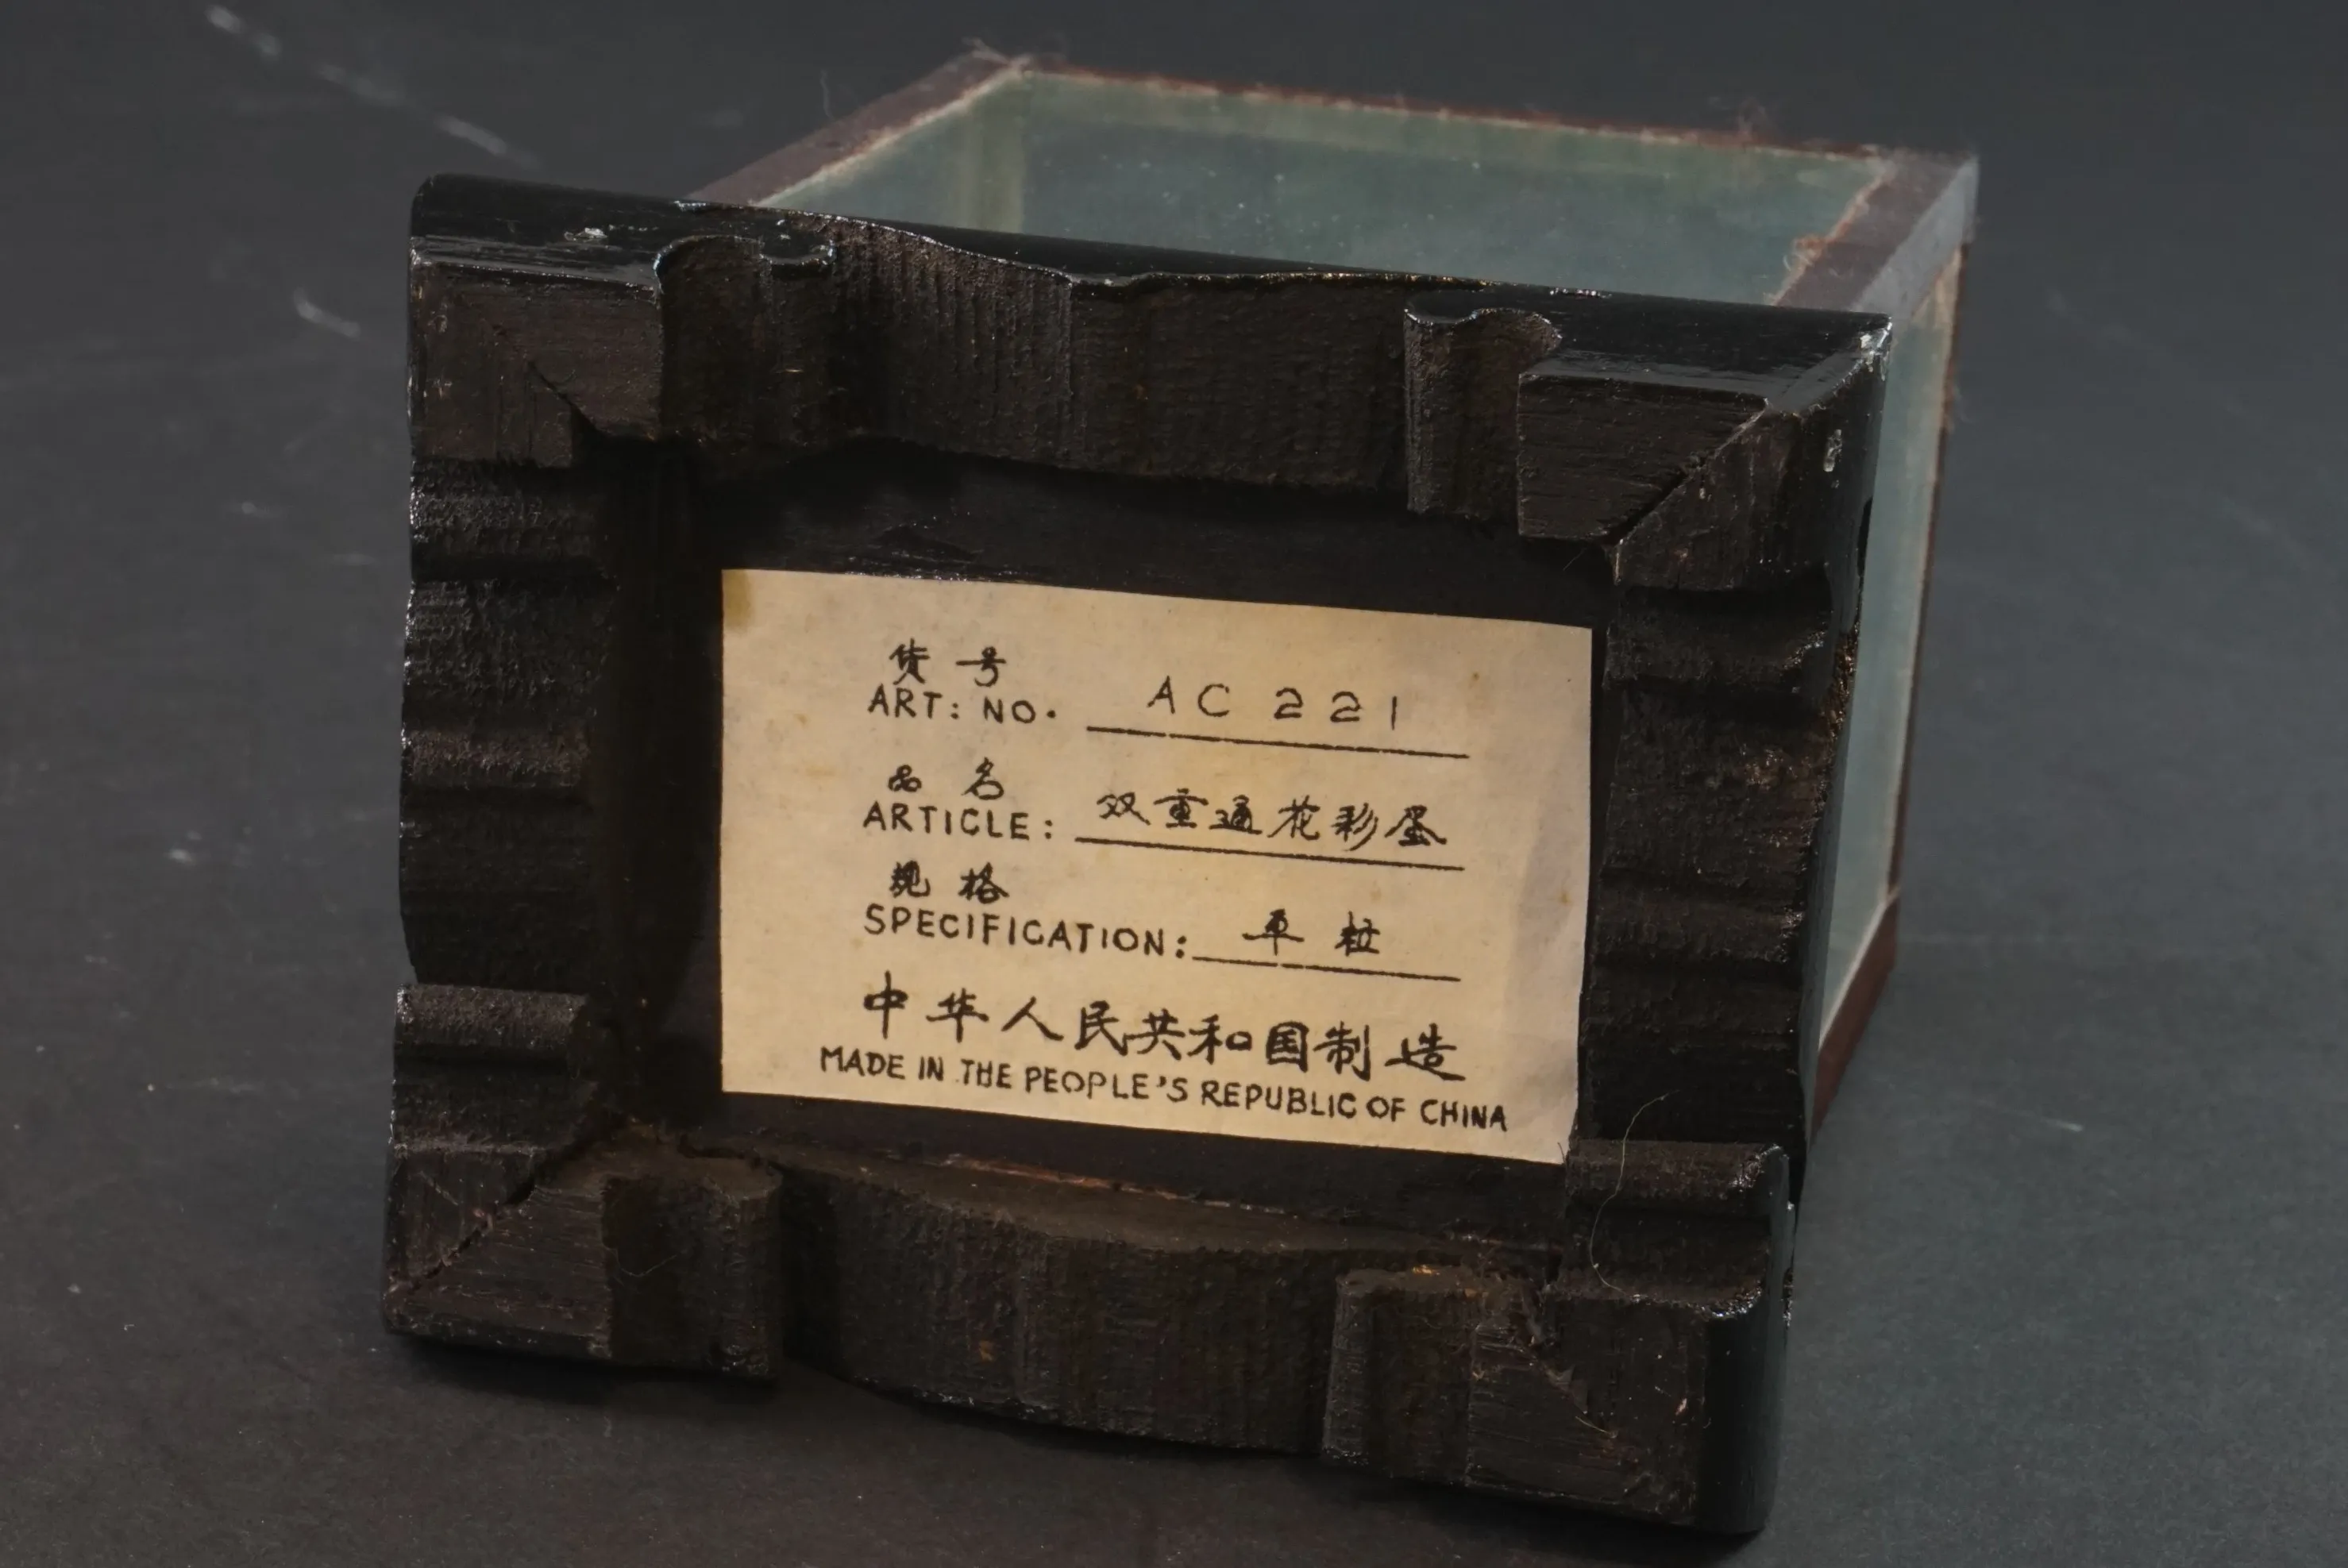 货号
ART: NO. AC 221
品名
ARTICLE: 双重通花彩蛋
规格
SPECIFICATION: 平粒
中华人民共和国制造
MADE IN THE PEOPLE'S REPUBLIC OF CHINA